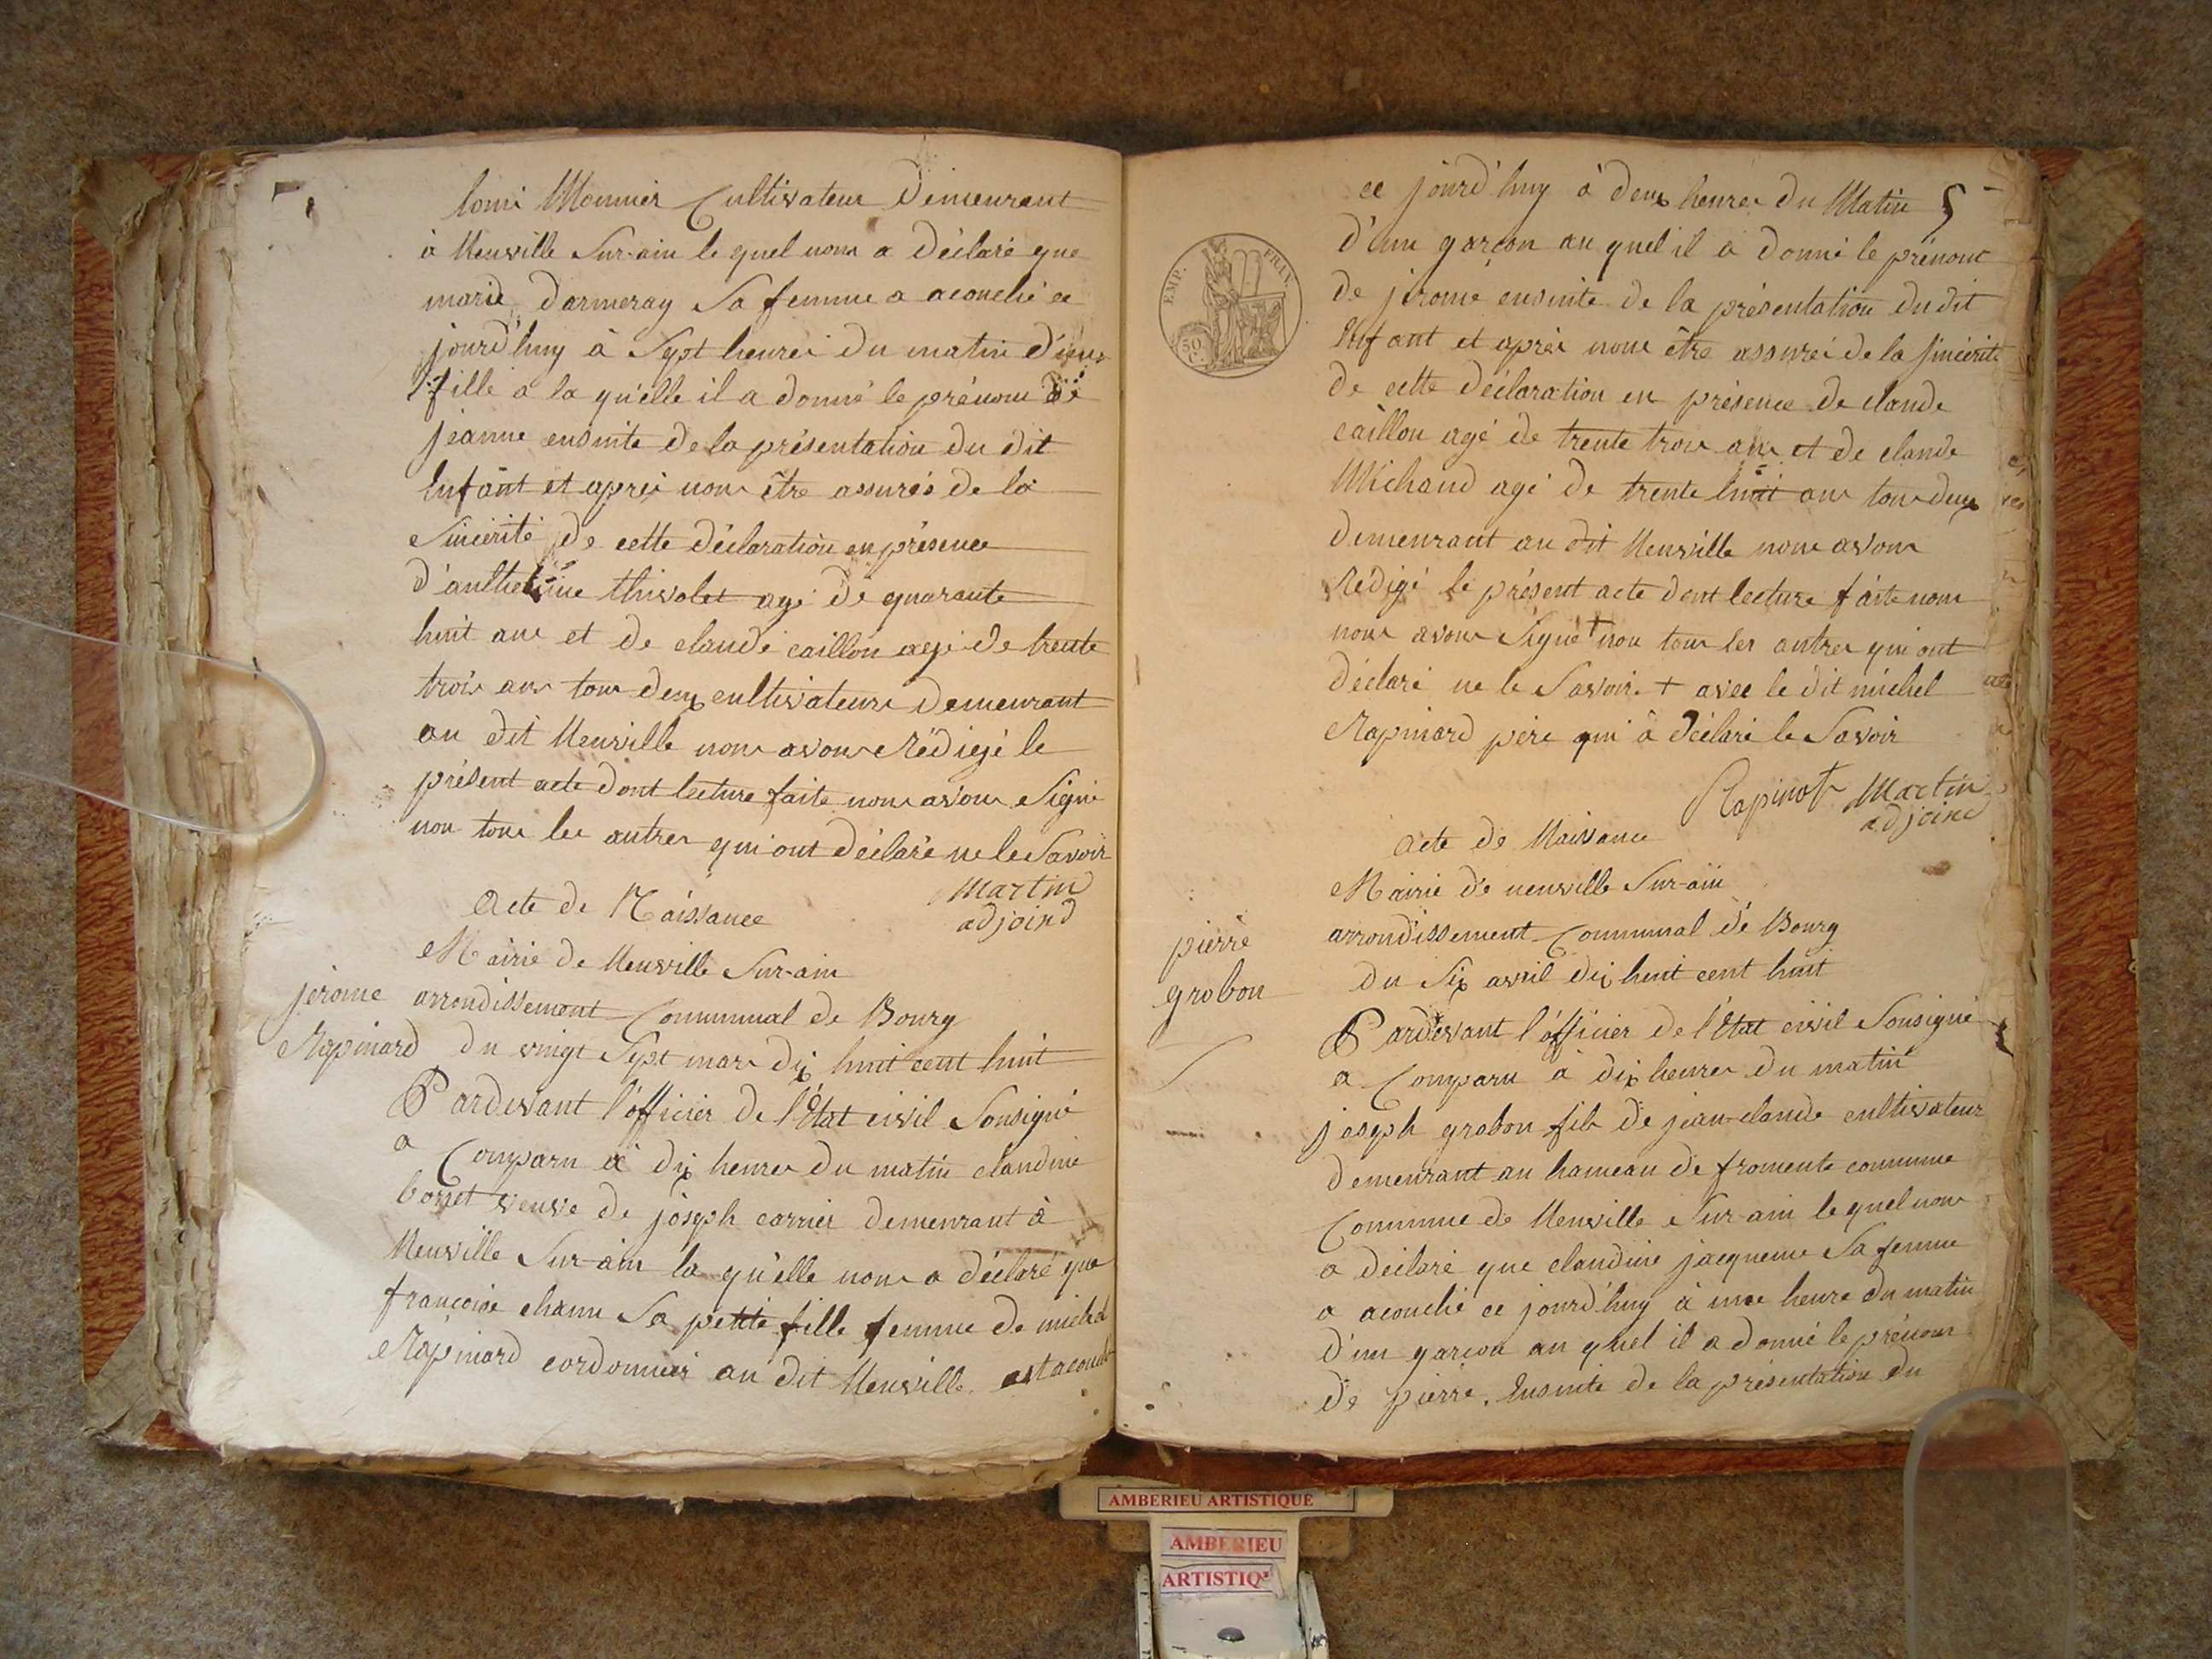 Monnier Cultivateur Demeurant
à Neuville Sur-ain le quel nous a déclaré que
marie darmeray Sa femme a acouché ce
jourd'huy à Sept heures du matin d'une
fille a la qu'elle il a donné le prénom de
jeanne ensuite de la présentation du dit
Enfant et après nous être assurés de la
Sincérité de cette déclaration en présence
d'anthelme thivolet agé de quarante
huit ans et de claude caillon agé de trente
trois ans tous deux cultivateurs demeurant
au dit Neuville nous avons Rédigé le
présent acte dont lecture faite nous avons Signé
non tous les autres qui ont déclaré ne le Savoir
Martin
adjoind
Acte de Naissance
Mairie de Neuville Sur-ain
jerome
Rapinard
arrondissement Communal de Bourg
du vingt Sept mars dix huit cent huit
Pardevant l'officier de l'Etat civil Sousigné
a Comparu à dix heures du matin claudine
borret veuve de joseph carrier demeurant à
Neuville Sur-ain la qu'elle nous a déclaré que
françoise chanu Sa petite fille femme de michel
Rapinard cordonnier au dit Neuville est acouché
5
ce jourd'huy à deux heures du Matin
d'un garçon au quel il a donné le prénom
de jerome ensuite de la présentation du dit
Enfant et après nous être assurés de la Sincérité
de cette déclaration en présence de claude
caillon agé de trente trois ans et de claude
Michaud agé de trente huit ans tous deux
demeurant au dit Neuville nous avons
Rédigé le présent acte dont lecture faite nous
nous avons Signé + non tous les autres qui ont
déclaré ne le Savoir. + avec le dit michel
Rapinard père qui à déclaré le Savoir
EMP. FRAN.
50
C.
Rapinot Martin
adjoind
Acte de Naissance
Mairie de neuville Sur-ain
pierre
grobon
arrondissement Communal de Bourg
du Six avril dix huit cent huit
Pardevant l'officier de l'Etat civil Sousigné
a Comparu à dix heures du matin
joseph grobon fils de jean-claude cultivateur
demeurant au hameau de fromente commune
Commune de Neuville Sur-ain le quel nous
a déclaré que claudine jacqueme Sa femme
a acouché ce jourd'huy à une heure du matin
d'un garçon au quel il a donné le prénom
de pierre. Ensuite de la présentation du
AMBERIEU ARTISTIQUE
AMBERIEU
ARTISTIQ